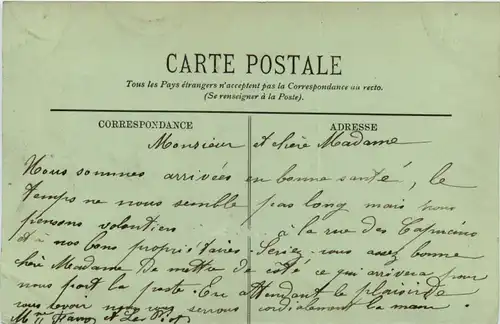 CARTE POSTALE
Tous les Pays étrangers n'acceptent pas la Correspondance au recto.
(Se renseigner à la Poste).
CORRESPONDANCE
ADRESSE
Monsieur et chère Madame
Nous sommes arrivées en bonne santé, le
temps ne nous semble pas long mais nous
pensons volontiers à la rue des Capucins
et à nos bons propriétaires. Seriez vous assez bonne
chère Madame De mettre de côté ce qui arrivera pour
nous par la poste. En attendant le plaisir de
vous revoir nous vous serrons cordialement la main
M